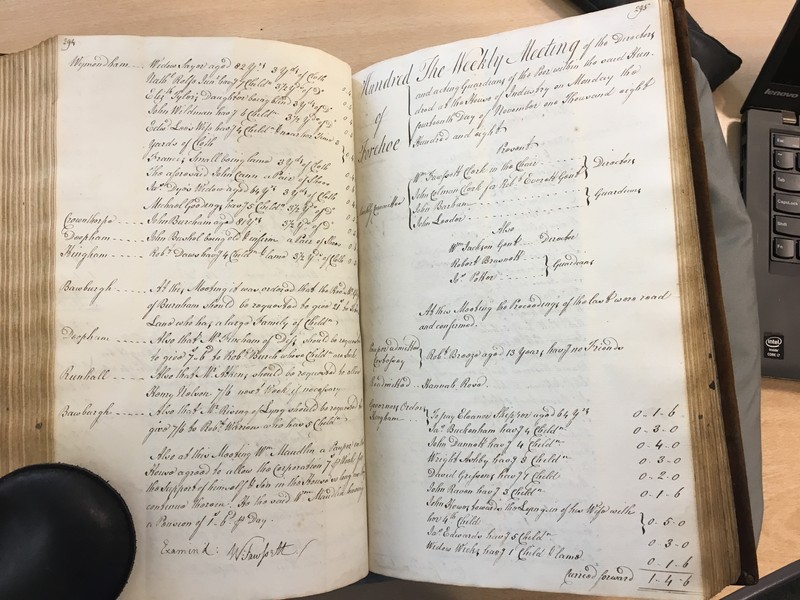 294
Wymondham ---- Widow Sayer aged 82 Yrs 3 Yds of Cloth
Nathl Rolfe Junr havg 7 Childn 3½ Yds of Do
Elizth Tylers Daughter being blind 3 Yds of Do
John Wildman havg 6 Childn 3½ Yds of Do
Wife havg 4 Childn
Yards of Cloth
Francis Small being lame 3 Yds of Cloth
The aforesaid John Cann a Pair of Shoes
Widow aged 64 Yrs 3 Yds of Cloth
Michael Goodings havg 5 Childn 3½ Yds of Do
Crownthorpe ---- John Burcham aged 81 Yrs 3½ Yds of Do
Deopham ---- John Bushel being old & infirm a Pair of Shoes
Hingham ---- Robt Daws havg 4 Childn & lame 3½ Yds of Cloth
Bawburgh ---- At this Meeting it was ordered that the Revd Mr
of Burnham should be requested to give
Land who has a large Family of Childn
Deopham ---- Also that Mr Mucham of Diss should be requested
to give 7-6d to Robt Burch whose Childn are sick
Runhall ---- Also that Mr should be requested to allow
Henry Nelson 7/6 next Week if necessary
Bawburgh ---- Also that Mr Rising of Lyng should be requested to
give 7/6 to Robt Warnow who has 5 Childn
Also at this Meeting Wm Maudlin a Pauper in the
House agreed to allow the Corporation 7s pr Week for
the Support of himself & Son in the House as long as they
continue therein. He the said Wm Maudlin having
a Pension of 1s 6d pr Day.
Examind: W Fawssett
295
Hundred of Forehoe
The Weekly Meeting of the Directors
and acting Guardians of the Poor within the said Hun-
dred at the House of Industry on Monday the
fourteenth Day of November one Thousand eight
Hundred and eight
Present
Weekly Committee
Wm Fawssett Clerk in the Chair
John Colman Clerk for Robt Everett Gent
Directors
John Barham
John Loader
Guardians
Also
Wm Jackson Gent -- Director
Robert Brasnett
Jas Potter
Guardians
At this Meeting the Proceedings of the last were read
and confirmed.
Pauper admitted
Costessey
Robt Breeze aged 13 Years havg no Friends
Readmitted - Hannah Rose
Governors Orders
Hingham
To pay Eleanor Skipper aged 64 Yrs 0-1-6
Jas Buckenham havg 4 Childn 0-3-0
John Dunnett havg 4 Childn 0-4-0
Wright Ashby havg 5 Childn 0-3-0
David Grissons havg 7 Childn 0-2-0
John Raven havg 3 Childn 0-1-6
John Howes towards the Lying in of his Wife with
her 4th Child 0-5-0
Jas Edwards havg 5 Childn 0-3-0
Widow Weeks havg 1 Child & lame 0-1-6
Carried forward 1-4-6
lenovo
Esc
Tab
CapsLock
Shift
Fn
intel
CORE i7